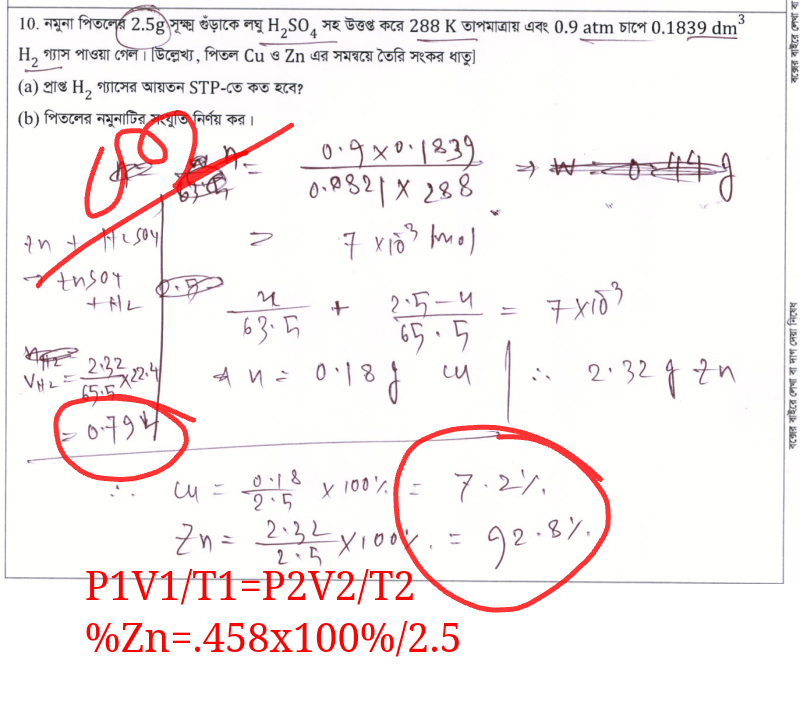 10. নমুনা পিতলের 2.5g সূক্ষ্ম গুঁড়াকে লঘু H₂SO₄ সহ উত্তপ্ত করে 288 K তাপমাত্রায় এবং 0.9 atm চাপে 0.1839 dm³
H₂ গ্যাস পাওয়া গেল। [উল্লেখ্য, পিতল Cu ও Zn এর সমন্বয়ে তৈরি সংকর ধাতু]
(a) প্রাপ্ত H₂ গ্যাসের আয়তন STP-তে কত হবে?
(b) পিতলের নমুনাটির সংযুতি নির্ণয় কর।
n = 0.9 × 0.1839 / 0.0821 × 288
= 7 × 10⁻³ mol
Zn + H₂SO4
→ ZnSO4
+ H₂
x / 63.5 + 2.5 - x / 65.5 = 7 × 10⁻³
V H₂ = 2.32 / 65.5 × 22.4
= 0.794
x = 0.18 g Cu ∴ 2.32 g Zn
∴ Cu = 0.18 / 2.5 × 100% = 7.2%
Zn = 2.32 / 2.5 × 100% = 92.8%
P1V1/T1=P2V2/T2
%Zn=.458x100%/2.5
বক্সের বাইরে লেখা বা দাগ দেয়া নিষেধ